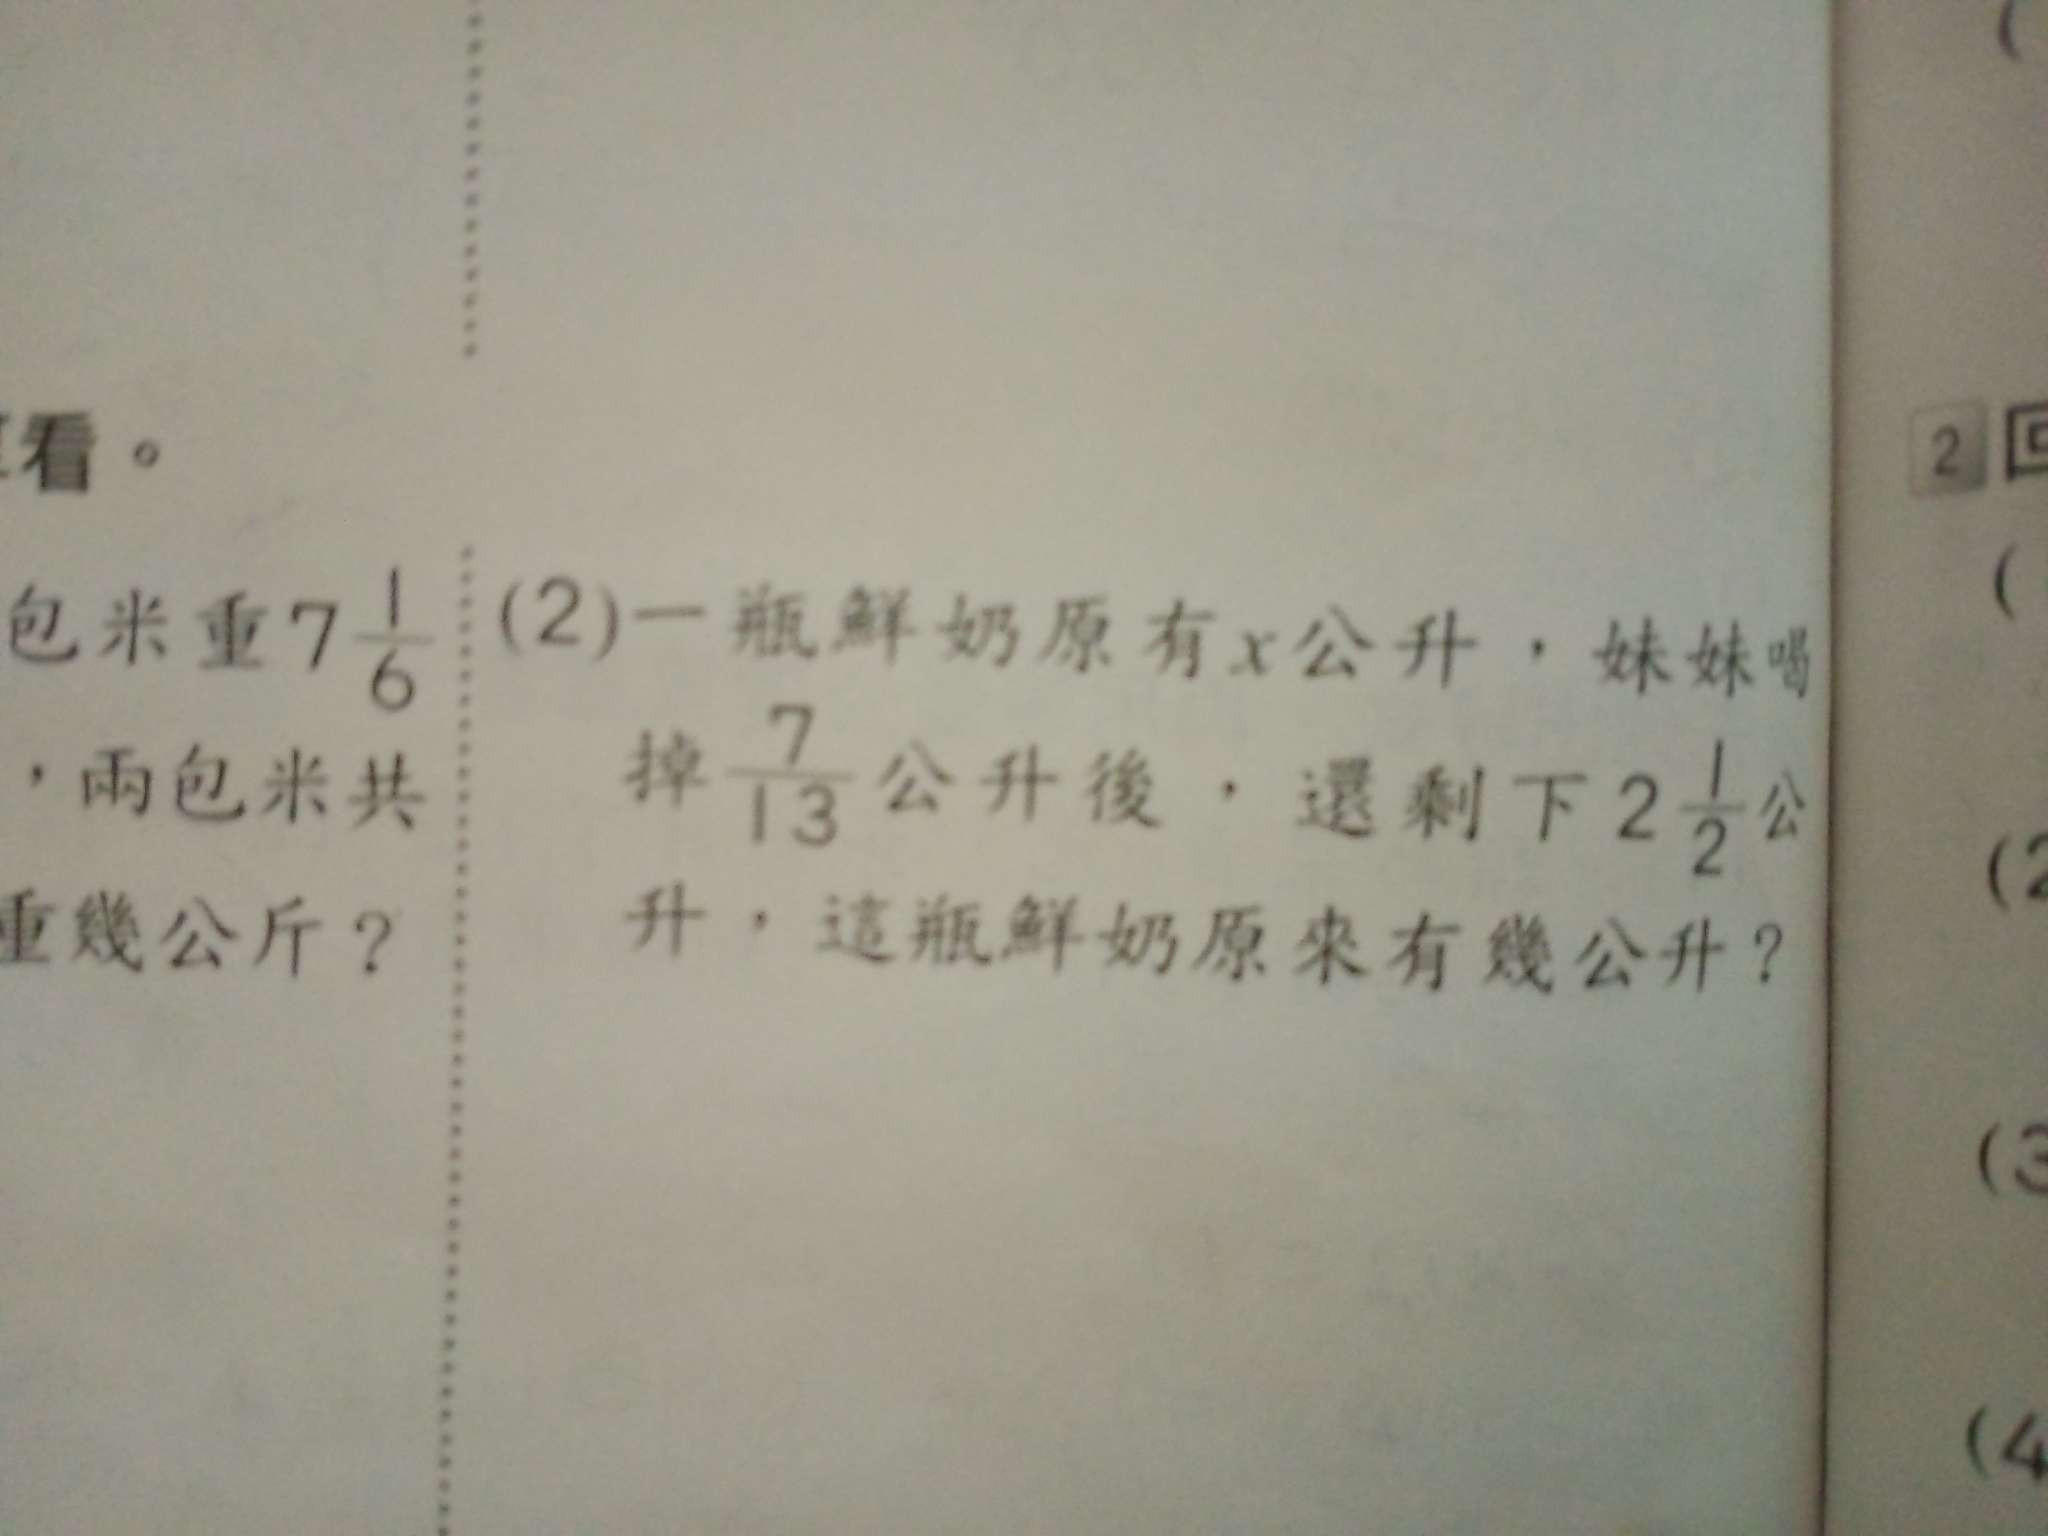 看。
包米重7 1/6
，兩包米共
重幾公斤？
(2)一瓶鮮奶原有x公升，妹妹喝
掉7/13公升後，還剩下2 1/2公
升，這瓶鮮奶原來有幾公升？
2 回
(
(2
(3
(4